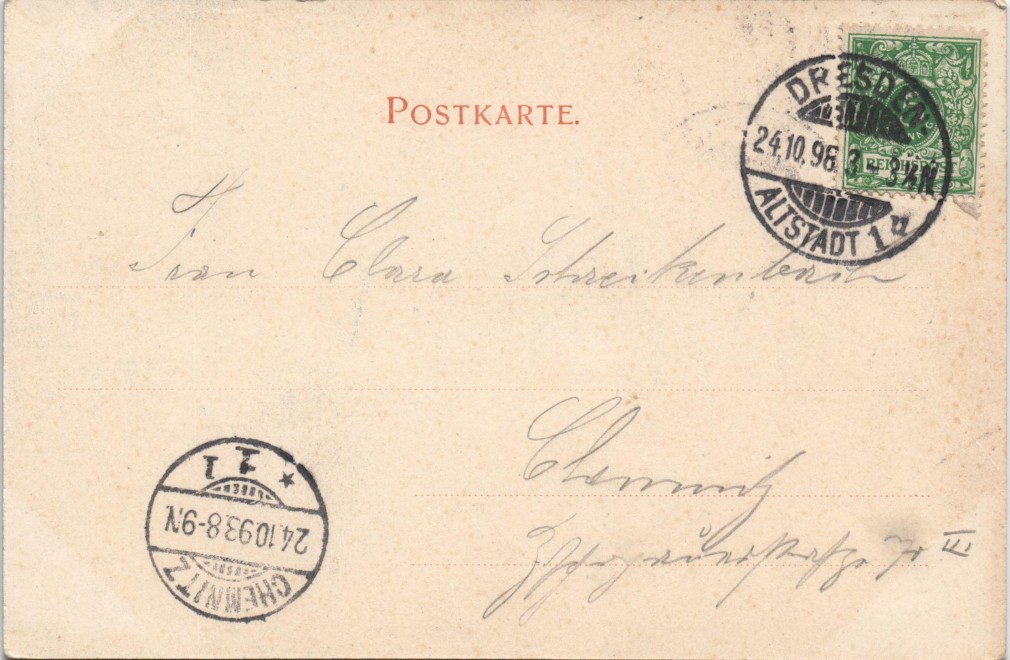 POSTKARTE.
DRESDEN-
24.10.98. 3-3½N
ALTSTADT 1u
REICHSPOST
Frau Clara Schreikenbach
Chemnitz
III
1 1
24.10.98.8-9.N.
CHEMNITZ